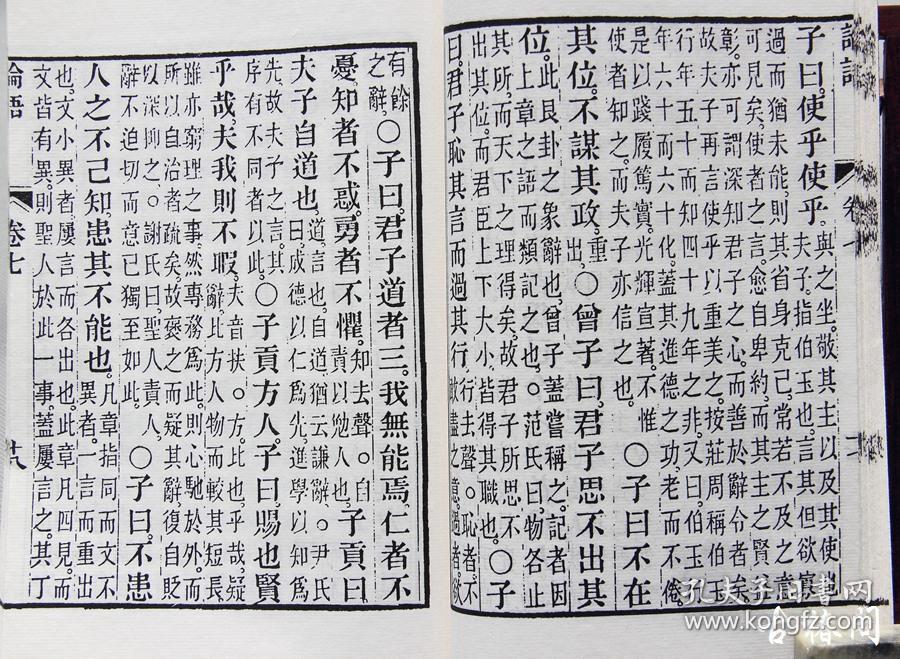 論語 卷七
子曰。使乎使乎。與之坐。敬其主以及其使也夫子。指伯玉也。言其但欲寡
過而猶未能。則其省身克己。常若不及之意可見矣。使者之言。愈自卑約。而其主之賢
彰。亦可謂深知君子之心。而善於辭令者矣故夫子再言使乎以重美之。按莊周稱伯玉
行年五十而知四十九年之非。又曰。伯玉行年六十而六十化。蓋其進德之功。老而不倦。
是以踐履篤實。光輝宣著。不惟使者知之。而夫子亦信之也。○子曰不在
其位。不謀其政。重出。○曾子曰。君子思不出其
位。此艮卦之象辭也。曾子蓋嘗稱之。記者因上章之語而類記之也。○范氏曰。物各止
其所。而天下之理得矣。故君子所思不出其位。而君臣上下大小。皆得其職也。○子
曰。君子恥其言而過其行。行去聲。恥者。不敢盡之意。過者。欲
有餘之辭。○子曰。君子道者三。我無能焉。仁者不
憂。知者不惑。勇者不懼。知去聲。○自責以勉人也。子貢曰
夫子自道也。道。言也。自道猶云謙辭。○尹氏曰。成德以仁爲先。進學以知爲
先。故夫子之言。其序有不同者以此。○子貢方人。子曰。賜也賢
乎哉。夫我則不暇。夫音扶。○方。比也。乎哉。疑辭。比方人物而較其短長。
雖亦窮理之事。然專務爲此。則心馳於外。而所以自治者疏矣。故褒之而疑其辭。復自貶
以深抑之。○謝氏曰。聖人責人。辭不迫切而意已獨至如此。○子曰。不患
人之不己知。患其不能也。凡章指同而文不異者。一言而重出
也。文小異者。屢言而各出也。此章凡四見。而文皆有異。則聖人於此一事。蓋屢言之。其丁
論語 卷七 十八
孔夫子旧书网
www.kongfz.com